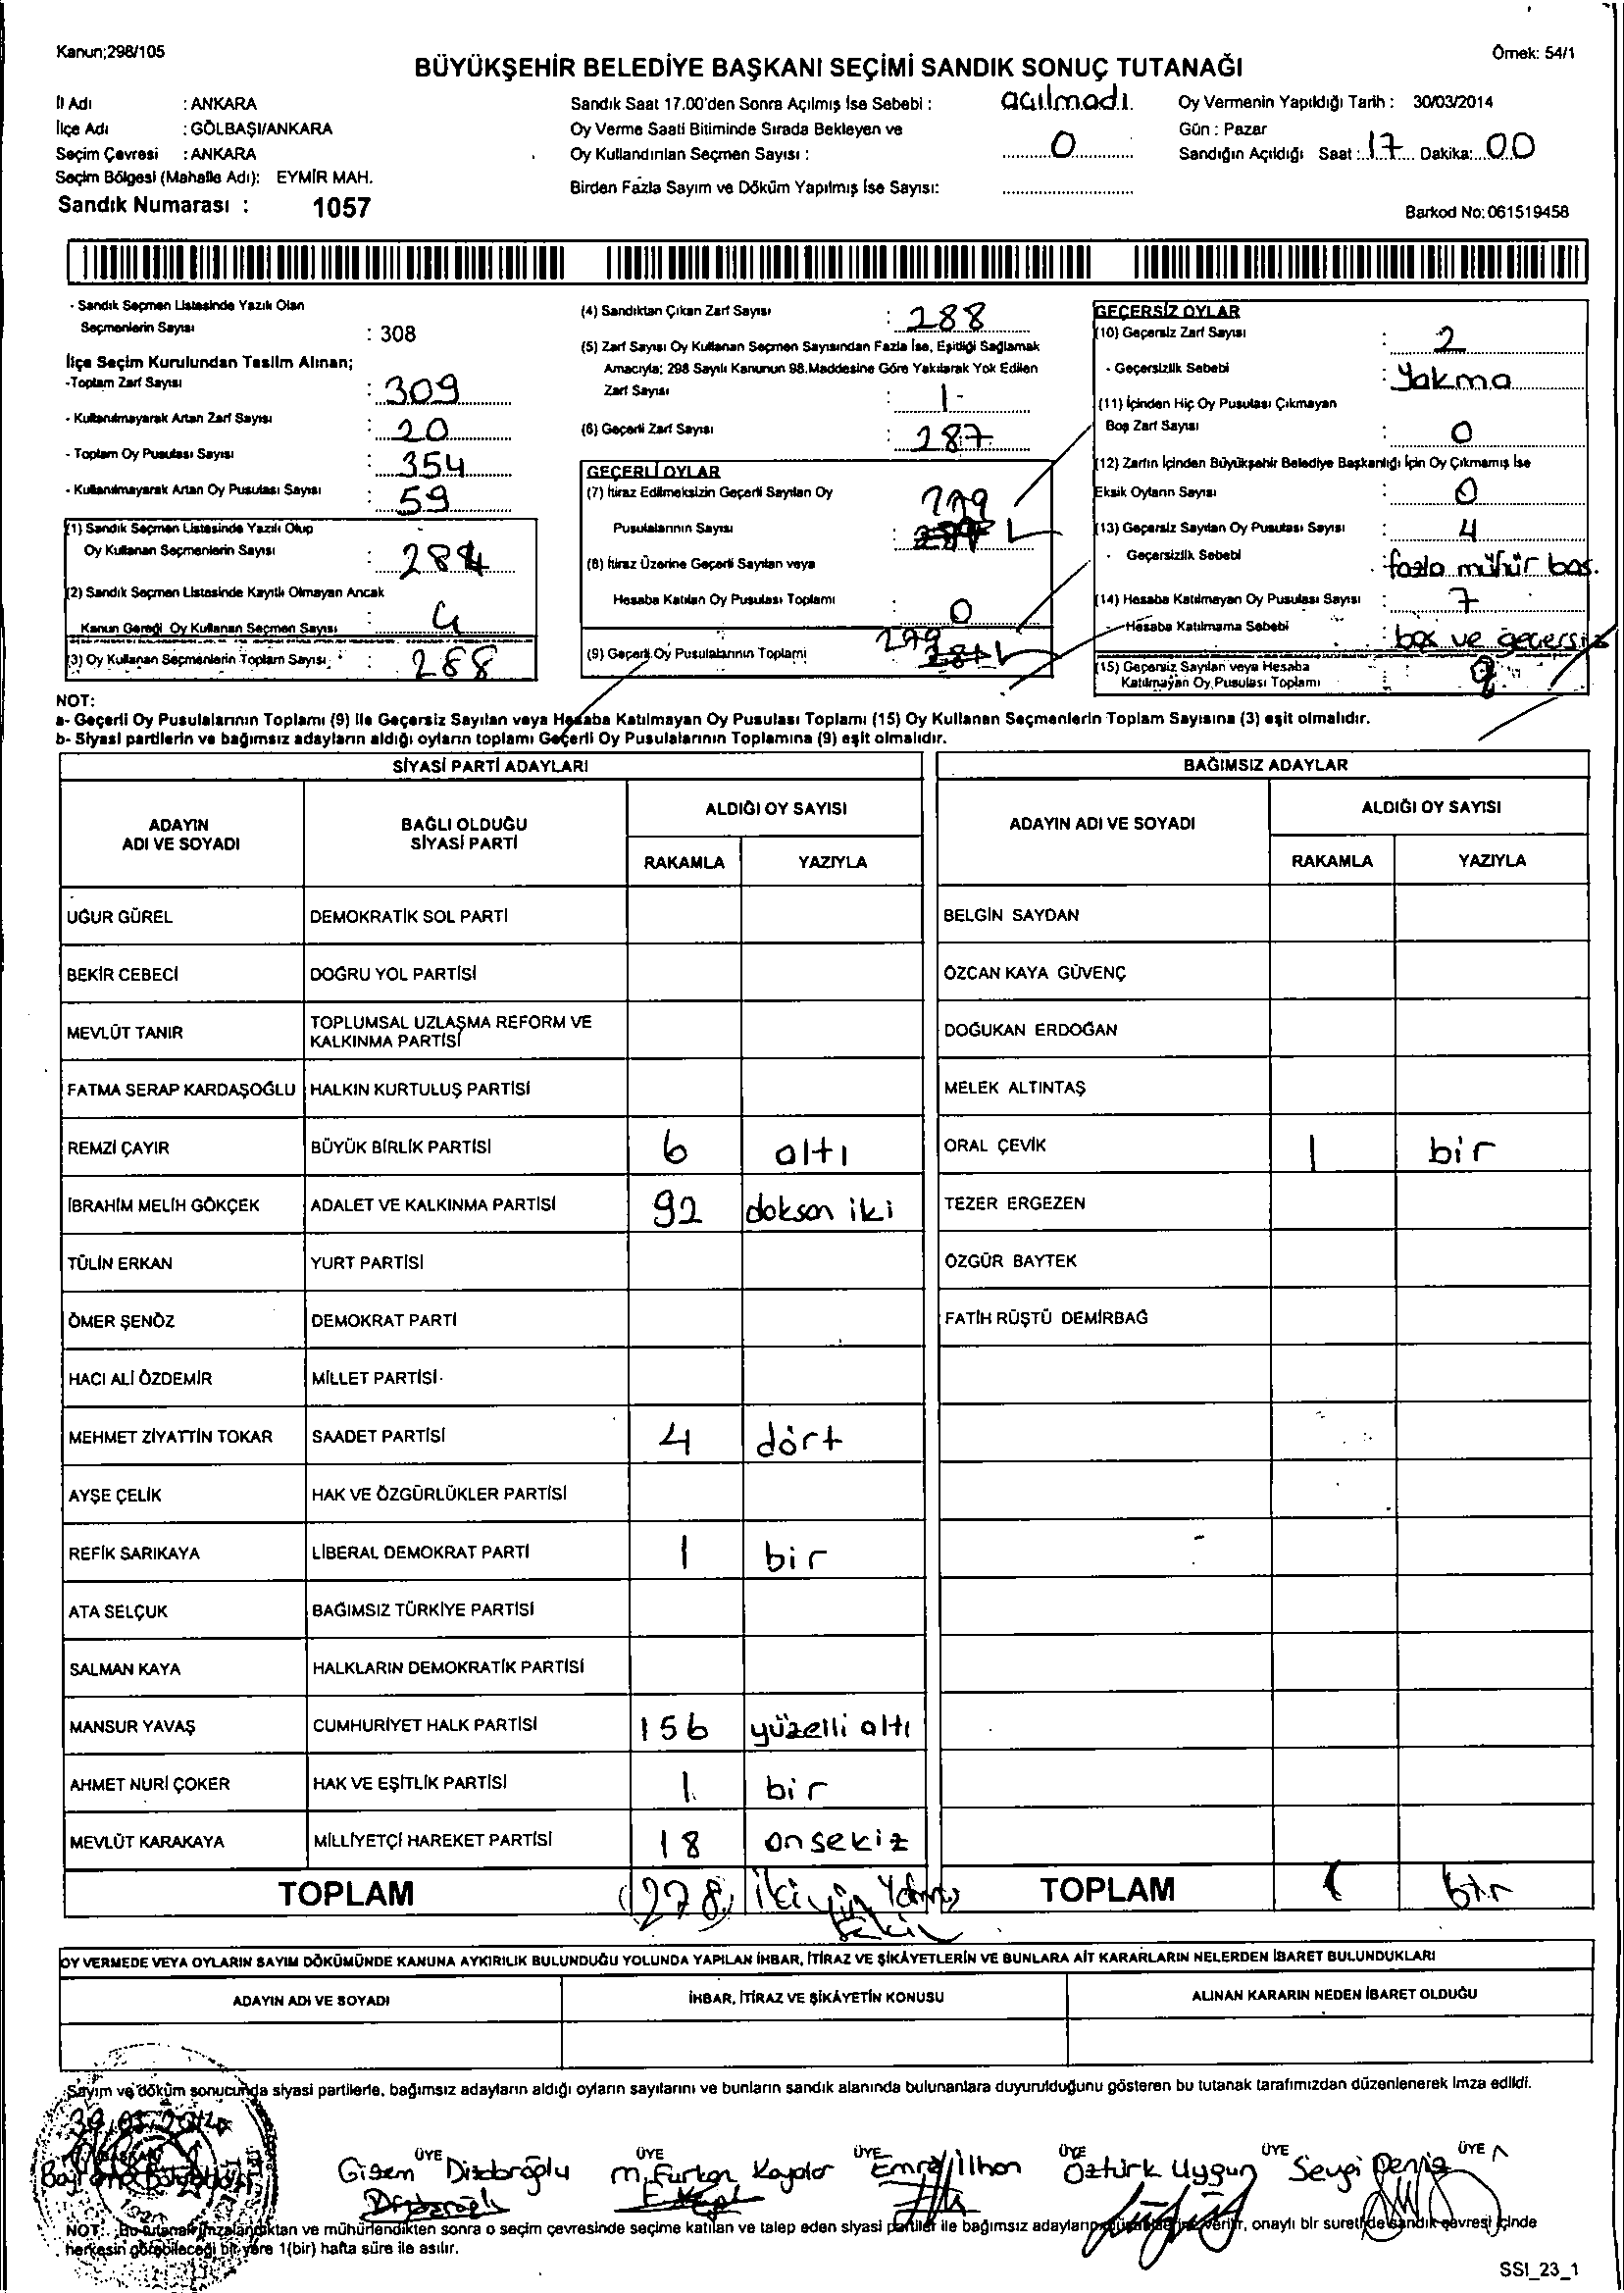 Kanun;298/105
Örnek: 54/1
BÜYÜKŞEHİR BELEDİYE BAŞKANI SEÇİMİ SANDIK SONUÇ TUTANAĞI
İl Adı : ANKARA
İlçe Adı : GÖLBAŞI/ANKARA
Seçim Çevresi : ANKARA
Seçim Bölgesi (Mahalle Adı): EYMİR MAH.
Sandık Numarası : 1057
Sandık Saat 17.00'den Sonra Açılmış İse Sebebi : açılmadı.
Oy Verme Saati Bitiminde Sırada Bekleyen ve
Oy Kullandırılan Seçmen Sayısı : 0
Birden Fazla Sayım ve Döküm Yapılmış İse Sayısı:
Oy Vermenin Yapıldığı Tarih : 30/03/2014
Gün : Pazar
Sandığın Açıldığı Saat : 17 Dakika: 00
Barkod No: 061519458
- Sandık Seçmen Listesinde Yazılı Olan
Seçmenlerin Sayısı : 308
İlçe Seçim Kurulundan Teslim Alınan;
-Toplam Zarf Sayısı : 309
- Kullanılmayarak Artan Zarf Sayısı : 20
- Toplam Oy Pusulası Sayısı : 354
- Kullanılmayarak Artan Oy Pusulası Sayısı : 59
(1) Sandık Seçmen Listesinde Yazılı Olup
Oy Kullanan Seçmenlerin Sayısı : 284
(2) Sandık Seçmen Listesinde Kayıtlı Olmayan Ancak
Kanun Gereği Oy Kullanan Seçmen Sayısı : 4
(3) Oy Kullanan Seçmenlerin Toplam Sayısı : 288
(4) Sandıktan Çıkan Zarf Sayısı : 288
(5) Zarf Sayısı Oy Kullanan Seçmen Sayısından Fazla İse, Eşitliği Sağlamak
Amacıyla; 298 Sayılı Kanunun 98.Maddesine Göre Yakılarak Yok Edilen
Zarf Sayısı : 1-
(6) Geçerli Zarf Sayısı : 287
GEÇERLİ OYLAR
(7) İtiraz Edilmeksizin Geçerli Sayılan Oy
Pusulalarının Sayısı : 279
(8) İtiraz Üzerine Geçerli Sayılan veya
Hesaba Katılan Oy Pusulası Toplamı : 0
(9) Geçerli Oy Pusulalarının Toplamı 279
GEÇERSİZ OYLAR
(10) Geçersiz Zarf Sayısı : 2
- Geçersizlik Sebebi : Yakma
(11) İçinden Hiç Oy Pusulası Çıkmayan
Boş Zarf Sayısı : 0
(12) Zarfın İçinden Büyükşehir Belediye Başkanlığı İçin Oy Çıkmamış İse
Eksik Oyların Sayısı : 0
(13) Geçersiz Sayılan Oy Pusulası Sayısı : 4
- Geçersizlik Sebebi : fazla mühür bas.
(14) Hesaba Katılmayan Oy Pusulası Sayısı : 7
- Hesaba Katılmama Sebebi : boş ve geçersiz
(15) Geçersiz Sayılan veya Hesaba
Katılmayan Oy Pusulası Toplamı :
NOT:
a- Geçerli Oy Pusulalarının Toplamı (9) ile Geçersiz Sayılan veya Hesaba Katılmayan Oy Pusulası Toplamı (15) Oy Kullanan Seçmenlerin Toplam Sayısına (3) eşit olmalıdır.
b- Siyasi partilerin ve bağımsız adayların aldığı oyların toplamı Geçerli Oy Pusulalarının Toplamına (9) eşit olmalıdır.
SİYASİ PARTİ ADAYLARI
ADAYIN ADI VE SOYADI
BAĞLI OLDUĞU SİYASİ PARTİ
ALDIĞI OY SAYISI
RAKAMLA YAZIYLA
UĞUR GÜREL DEMOKRATİK SOL PARTİ
BEKİR CEBECİ DOĞRU YOL PARTİSİ
MEVLÜT TANIR TOPLUMSAL UZLAŞMA REFORM VE KALKINMA PARTİSİ
FATMA SERAP KARDAŞOĞLU HALKIN KURTULUŞ PARTİSİ
REMZİ ÇAYIR BÜYÜK BİRLİK PARTİSİ 6 altı
İBRAHİM MELİH GÖKÇEK ADALET VE KALKINMA PARTİSİ 92 doksan iki
TÜLİN ERKAN YURT PARTİSİ
ÖMER ŞENÖZ DEMOKRAT PARTİ
HACI ALİ ÖZDEMİR MİLLET PARTİSİ
MEHMET ZİYATTİN TOKAR SAADET PARTİSİ 4 dört
AYŞE ÇELİK HAK VE ÖZGÜRLÜKLER PARTİSİ
REFİK SARIKAYA LİBERAL DEMOKRAT PARTİ 1 bir
ATA SELÇUK BAĞIMSIZ TÜRKİYE PARTİSİ
SALMAN KAYA HALKLARIN DEMOKRATİK PARTİSİ
MANSUR YAVAŞ CUMHURİYET HALK PARTİSİ 156 yüzelli altı
AHMET NURİ ÇOKER HAK VE EŞİTLİK PARTİSİ 1 bir
MEVLÜT KARAKAYA MİLLİYETÇİ HAREKET PARTİSİ 18 onsekiz
TOPLAM 278
BAĞIMSIZ ADAYLAR
ADAYIN ADI VE SOYADI
ALDIĞI OY SAYISI
RAKAMLA YAZIYLA
BELGİN SAYDAN
ÖZCAN KAYA GÜVENÇ
DOĞUKAN ERDOĞAN
MELEK ALTINTAŞ
ORAL ÇEVİK 1 bir
TEZER ERGEZEN
ÖZGÜR BAYTEK
FATİH RÜŞTÜ DEMİRBAĞ
TOPLAM 1 bir
OY VERMEDE VEYA OYLARIN SAYIM DÖKÜMÜNDE KANUNA AYKIRILIK BULUNDUĞU YOLUNDA YAPILAN İHBAR, İTİRAZ VE ŞİKÂYETLERİN VE BUNLARA AİT KARARLARIN NELERDEN İBARET BULUNDUKLARI
ADAYIN ADI VE SOYADI İHBAR, İTİRAZ VE ŞİKÂYETİN KONUSU ALINAN KARARIN NEDEN İBARET OLDUĞU
Sayım ve döküm sonucunda siyasi partilerle, bağımsız adayların aldığı oyların sayılarını ve bunların sandık alanında bulunanlara duyurulduğunu gösteren bu tutanak tarafımızdan düzenlenerek imza edildi.
BAŞKAN ÜYE ÜYE ÜYE ÜYE ÜYE ÜYE
Gizem Dizdaroğlu M. Furkan Kaplar Emre İlhan Öztürk Uygun Sevgi Deniz
NOT: Bu tutanak imzalandıktan ve mühürlendikten sonra o seçim çevresinde seçime katılan ve talep eden siyasi partiler ile bağımsız adayların verilir, onaylı bir sureti de sandık çevresi içinde
herkesin görebileceği bir yere 1(bir) hafta süre ile asılır.
SSI_23_1